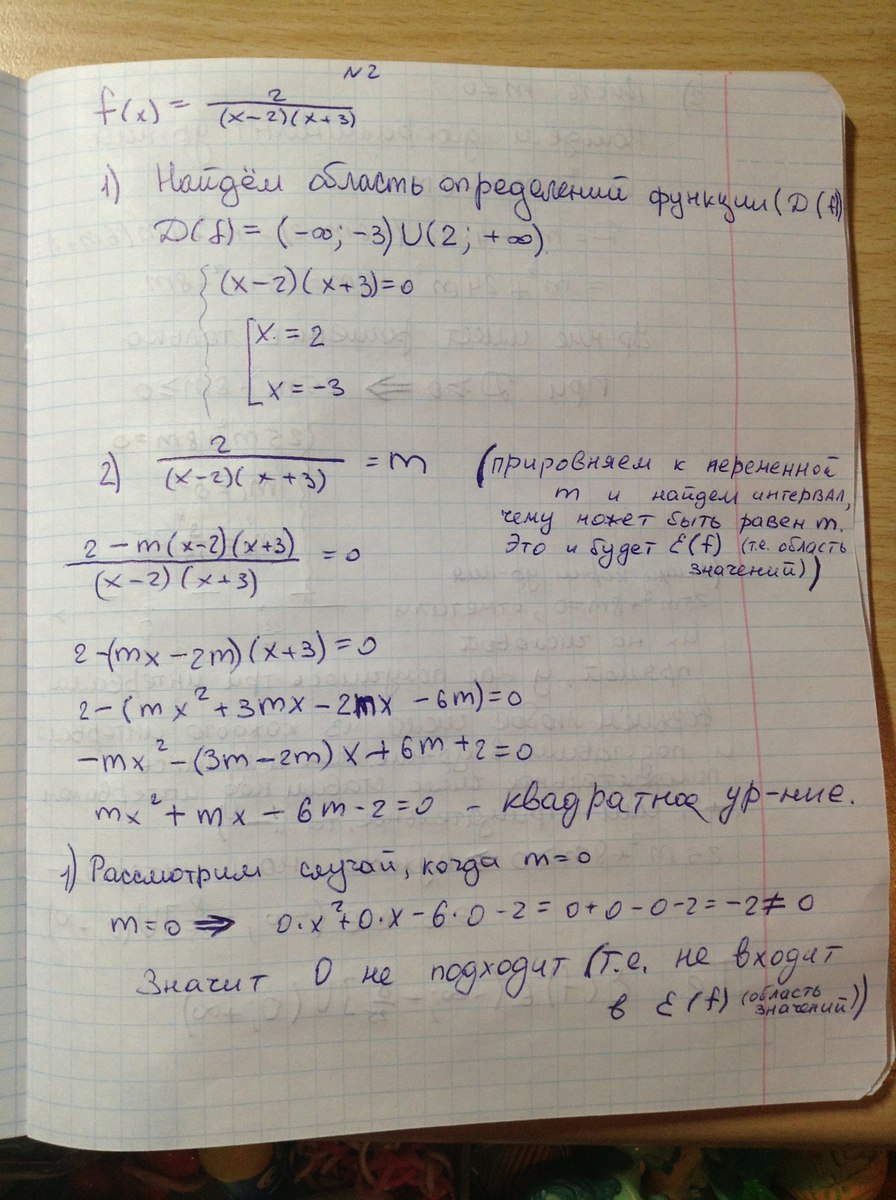 N2
f(x) = 2/((x-2)(x+3))
1) Найдём область определений функции (D(f))
D(f) = (-∞; -3)U(2; +∞).
(x-2)(x+3)=0
x. = 2
x = -3
2) 2/((x-2)(x+3)) = m
(прировняем к переменной
m и найдем интервал,
чему может быть равен m.
Это и будет E(f) (т.е. область
значений))
(2-m(x-2)(x+3))/((x-2)(x+3)) = 0
2-(mx-2m)(x+3)=0
2-(mx²+3mx-2mx-6m)=0
-mx²-(3m-2m)x+6m+2=0
mx²+mx-6m-2=0 - квадратное ур-ние.
1) Рассмотрим случай, когда m=0
m=0 => 0·x²+0·x-6·0-2=0+0-0-2=-2≠0
Значит 0 не подходит (т.е. не входит
в E(f) (область
значений))